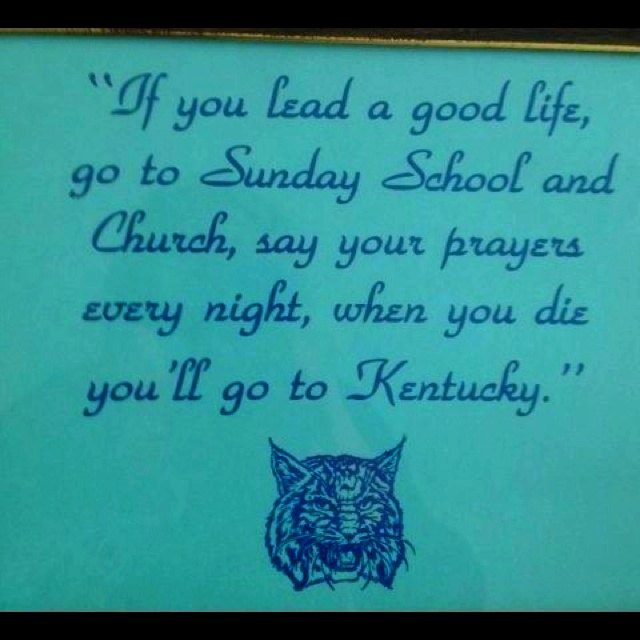 "If you lead a good life,
go to Sunday School and
Church, say your prayers
every night, when you die
you'll go to Kentucky."